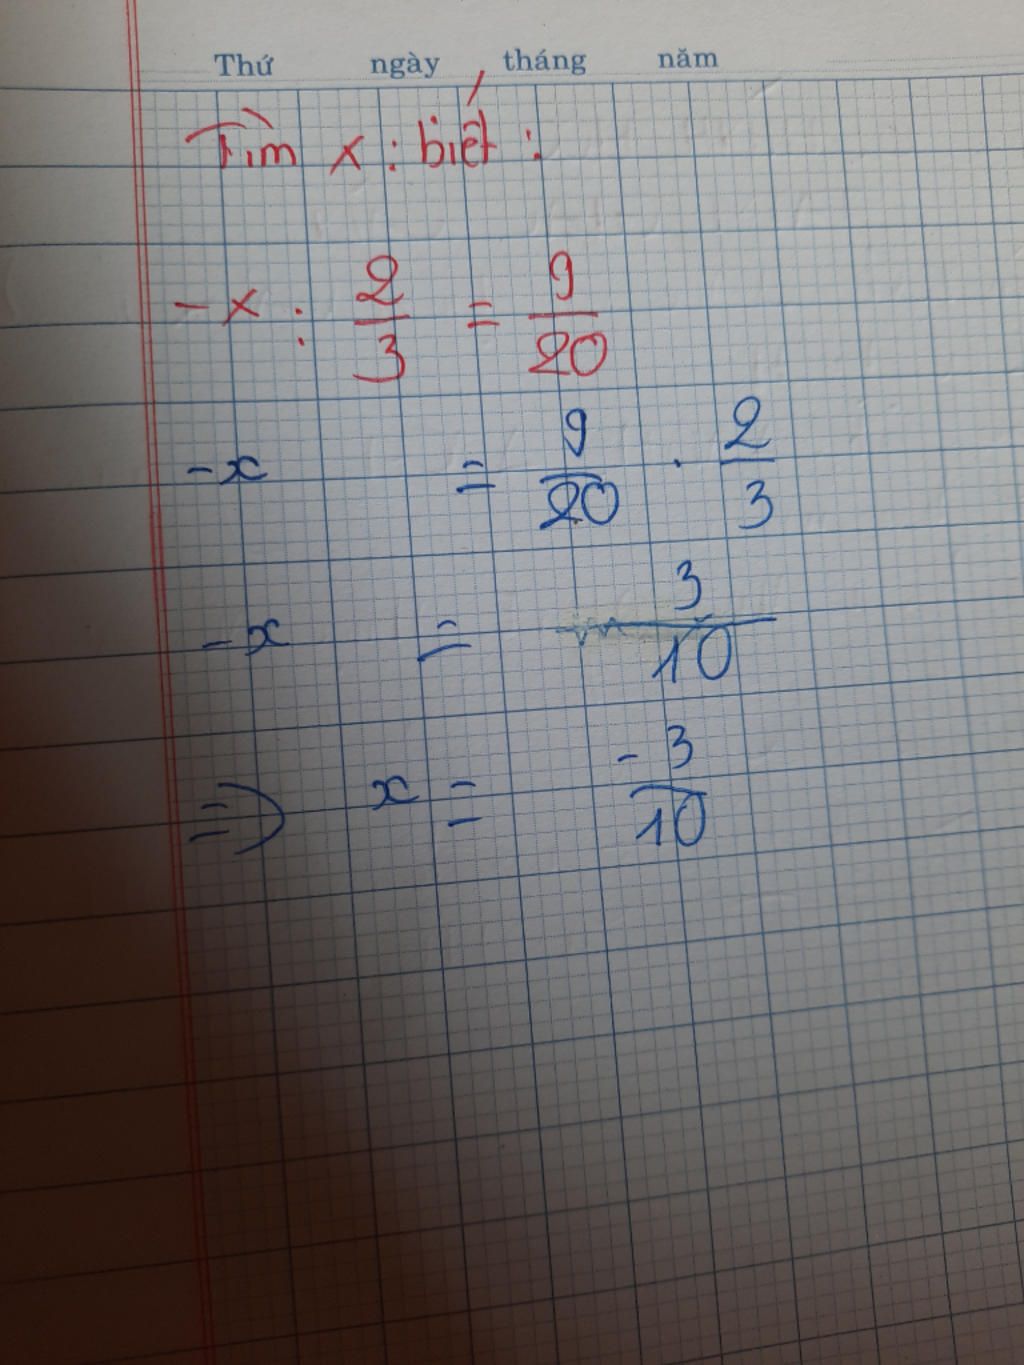 Thứ ngày tháng năm
Tìm x : biết :
-x : 2/3 = 9/20
-x = 9/20 . 2/3
-x = 3/10
=> x = -3/10